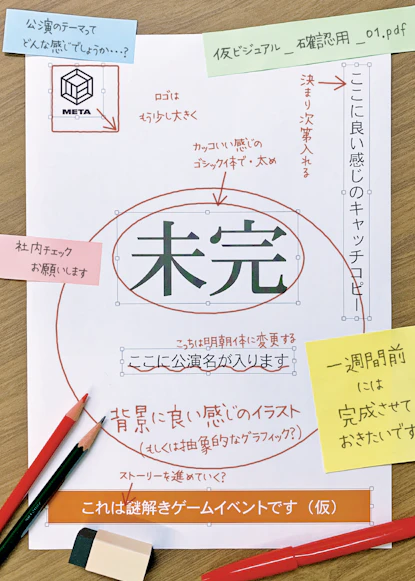 公演のテーマって
どんな感じでしょうか・・・?
仮ビジュアル_確認用_01.pdf
META
ロゴは
もう少し大きく
決まり次第入れる
ここに良い感じのキャッチコピー
カッコいい感じの
ゴシック体で・太め
未完
社内チェック
お願いします
こっちは明朝体に変更する
ここに公演名が入ります
一週間前
には
完成させて
おきたいです
背景に良い感じのイラスト
(もしくは抽象的なグラフィック?)
ストーリーを進めていく?
これは謎解きゲームイベントです（仮）